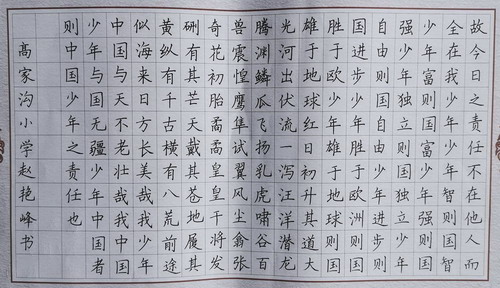 故今日之责任不在他人而
全在我少年少年智则国智
少年富则国富少年强则国
强少年独立则国独立少年
自由则国自由少年进步则
国进步少年胜于欧洲则国
胜于欧少年雄于地球则国
雄于地球红日初升其道大
光河出伏流一泻汪洋潜龙
腾渊鳞爪飞扬乳虎啸谷百
兽震惶鹰隼试翼风尘翕张
奇花初胎矞矞皇皇干将发
硎有其芒天戴其苍地履其
黄纵有千古横有八荒前途
似海来日方长美哉我少年
中国与天不老壮哉我中国
少年与国无疆少年中国者
则中国少年之责任也
高家沟小学赵艳峰书